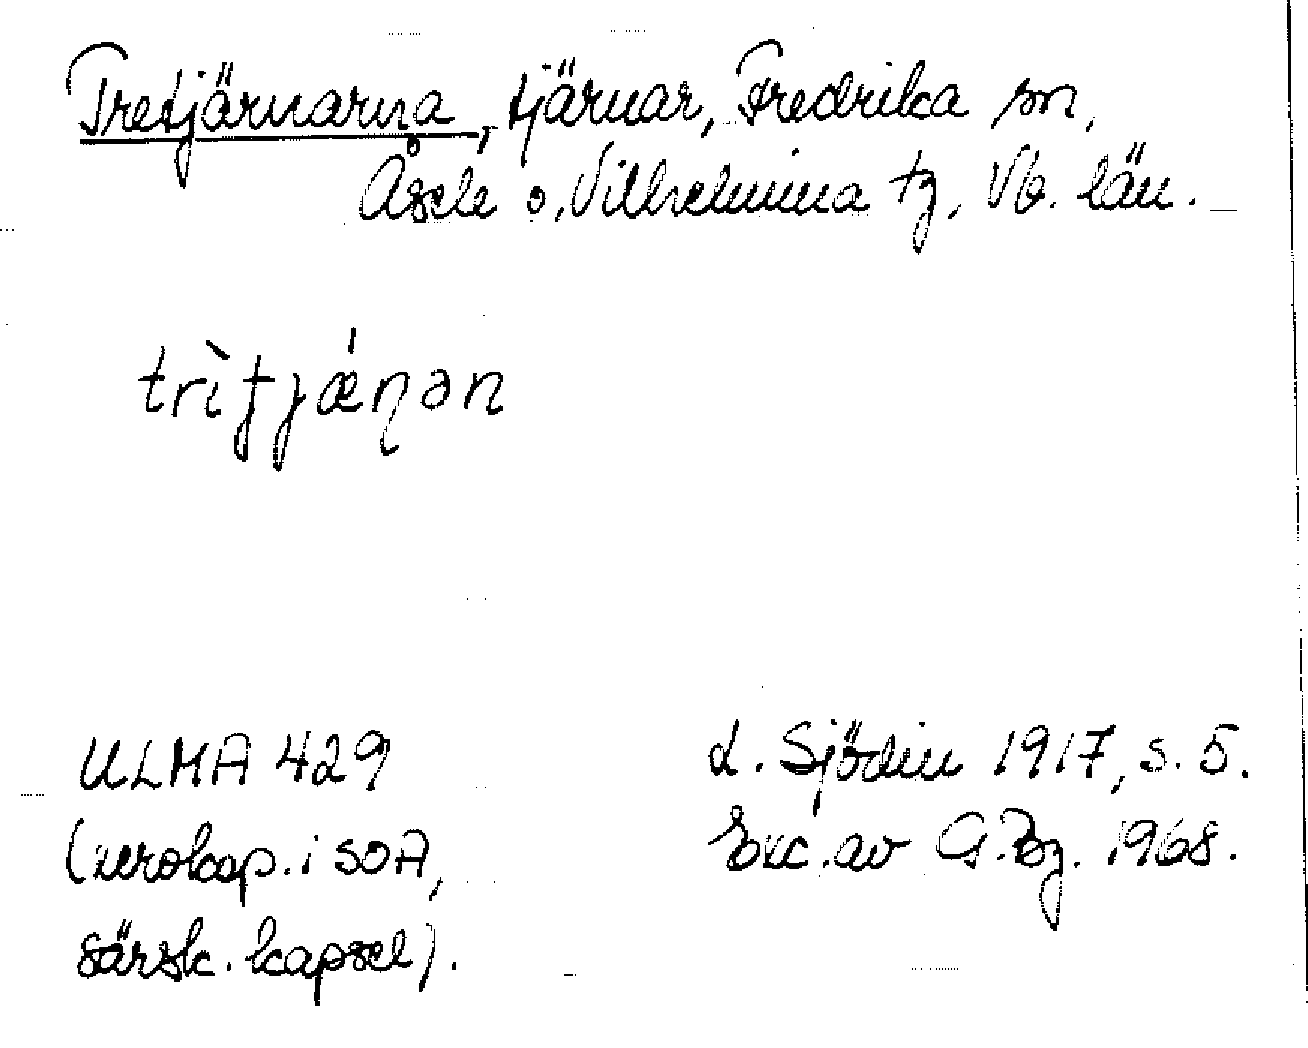 Tretjärnarna, tjärnar, Fredrika sn,
Åsele o. Vilhelmina tg, Vb. län.
trìtjǽṇən
ULMA 429
(xerokop. i SOA,
särsk. kapsel).
L. Sjödin 1917, s. 5.
Exc. av G. Bg. 1968.